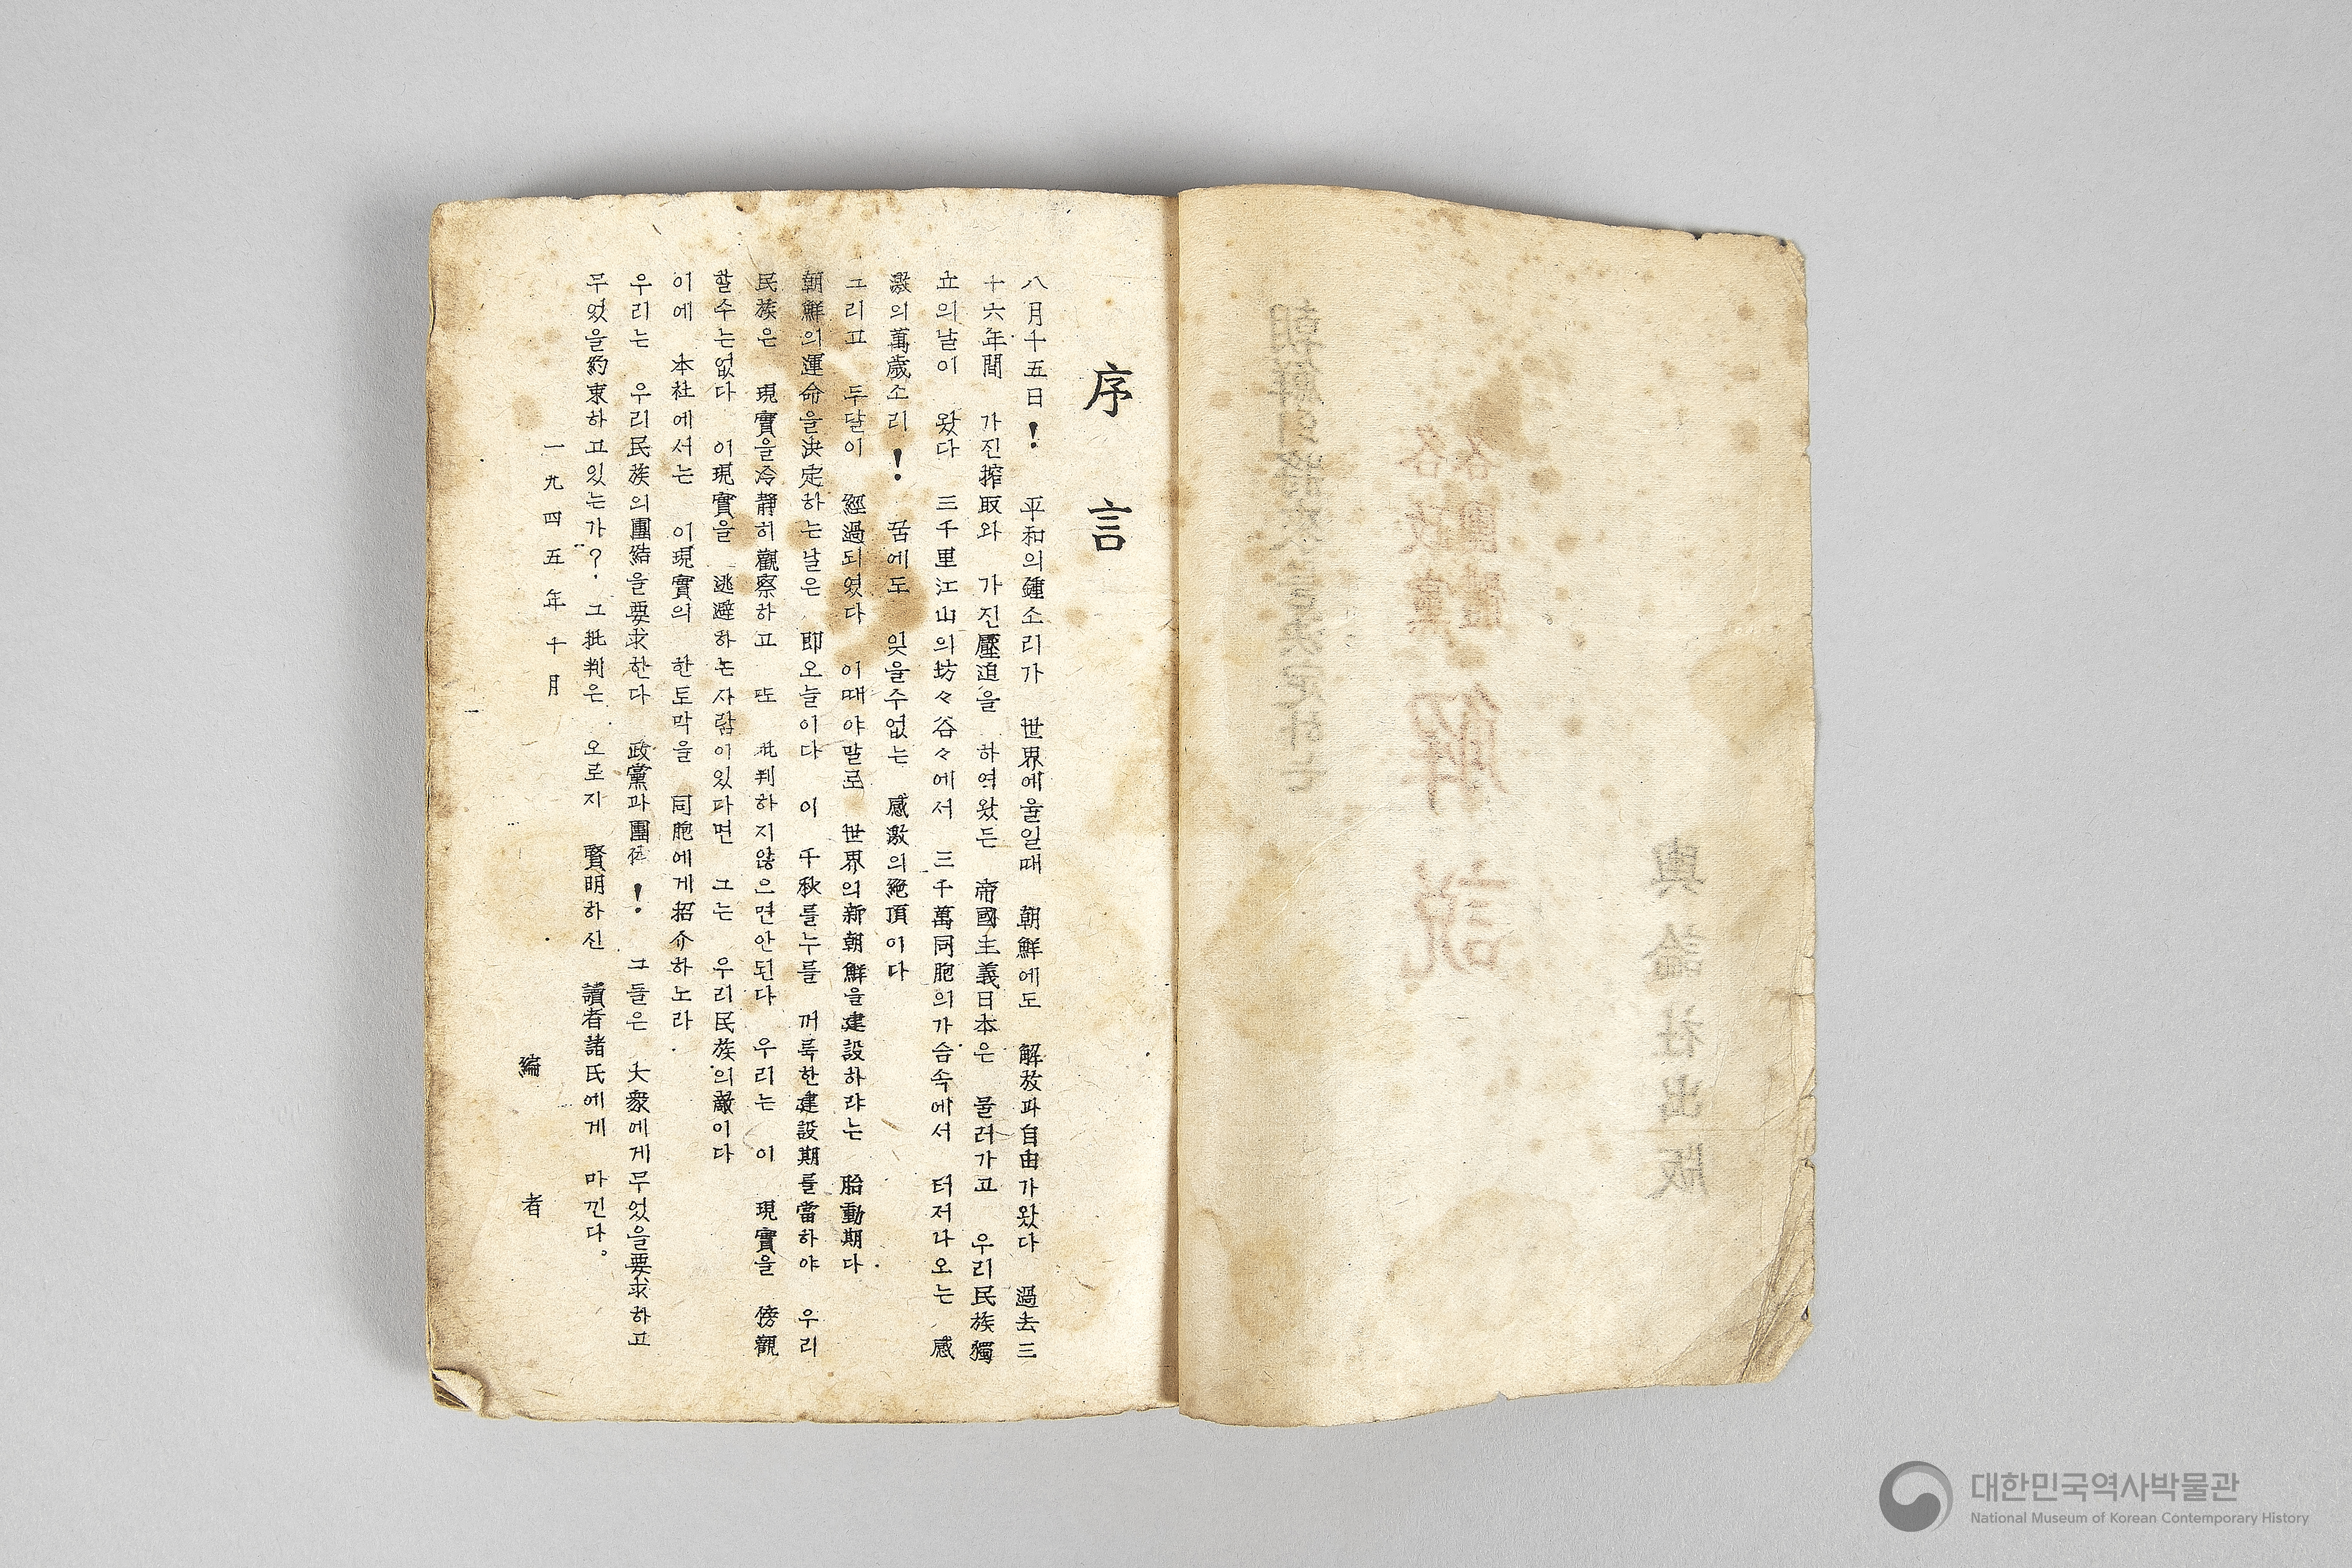 序言
八月十五日! 平和의鍾소리가 世界에울일때 朝鮮에도 解放과自由가왔다 過去三
十六年間 가진搾取와 가진壓迫을 하여왔든 帝國主義日本은 물러가고 우리民族獨
立의날이 왔다 三千里江山의坊々谷々에서 三千萬同胞의가슴속에서 터저라오는 感
激의萬歲소리! 꿈에도 잊을수없는 感激의絶頂이다
그리고 두달이 經過되였다 이때야말로 世界의新朝鮮을建設하랴는 胎動期다.
朝鮮의運命을決定하는날은 即오늘이다 이 千秋를누를 꺼룩한建設期를當하야 우리
民族은 現實을冷靜히觀察하고 또 批判하지않으면안된다 우리는 이 現實을 傍觀
할수는없다 이現實을 逃避하는사람이있다면 그는 우리民族의敵이다
이에 本社에서는 이現實의 한토막을 同胞에게招介하노라.
우리는 우리民族의團結을要求한다 政黨과團体! 그들은 大衆에게무었을要求하고
무었을約束하고있는가? 그批判은 오로지 賢明하신 讀者諸氏에게 마낀다。
一九四五年十月
編者
朝鮮의將來를決定하는
各政黨
各團體
解說
輿論社出版
대한민국역사박물관
National Museum of Korean Contemporary History